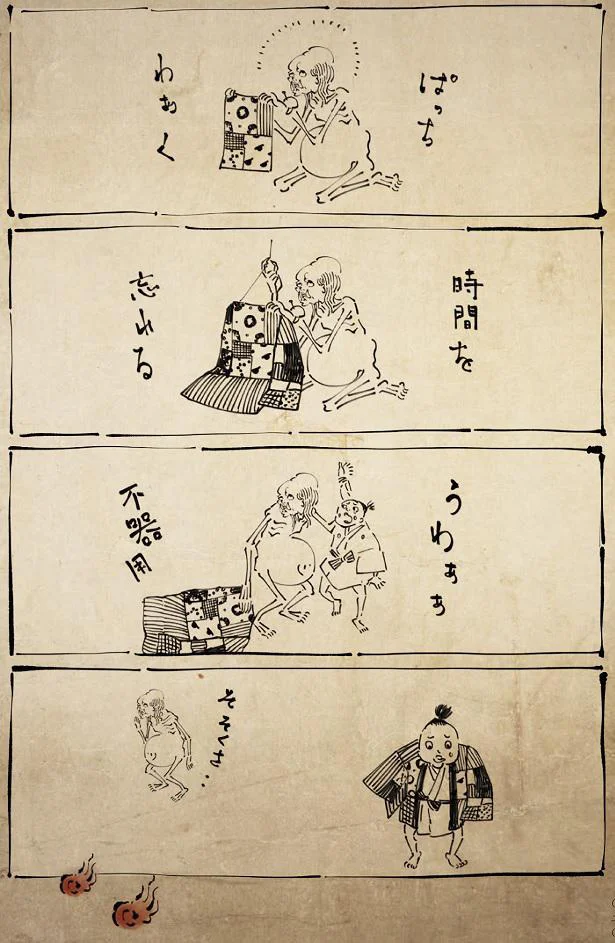 ぱっち
わぁく
時間を
忘れる
うわぁぁ
不器用